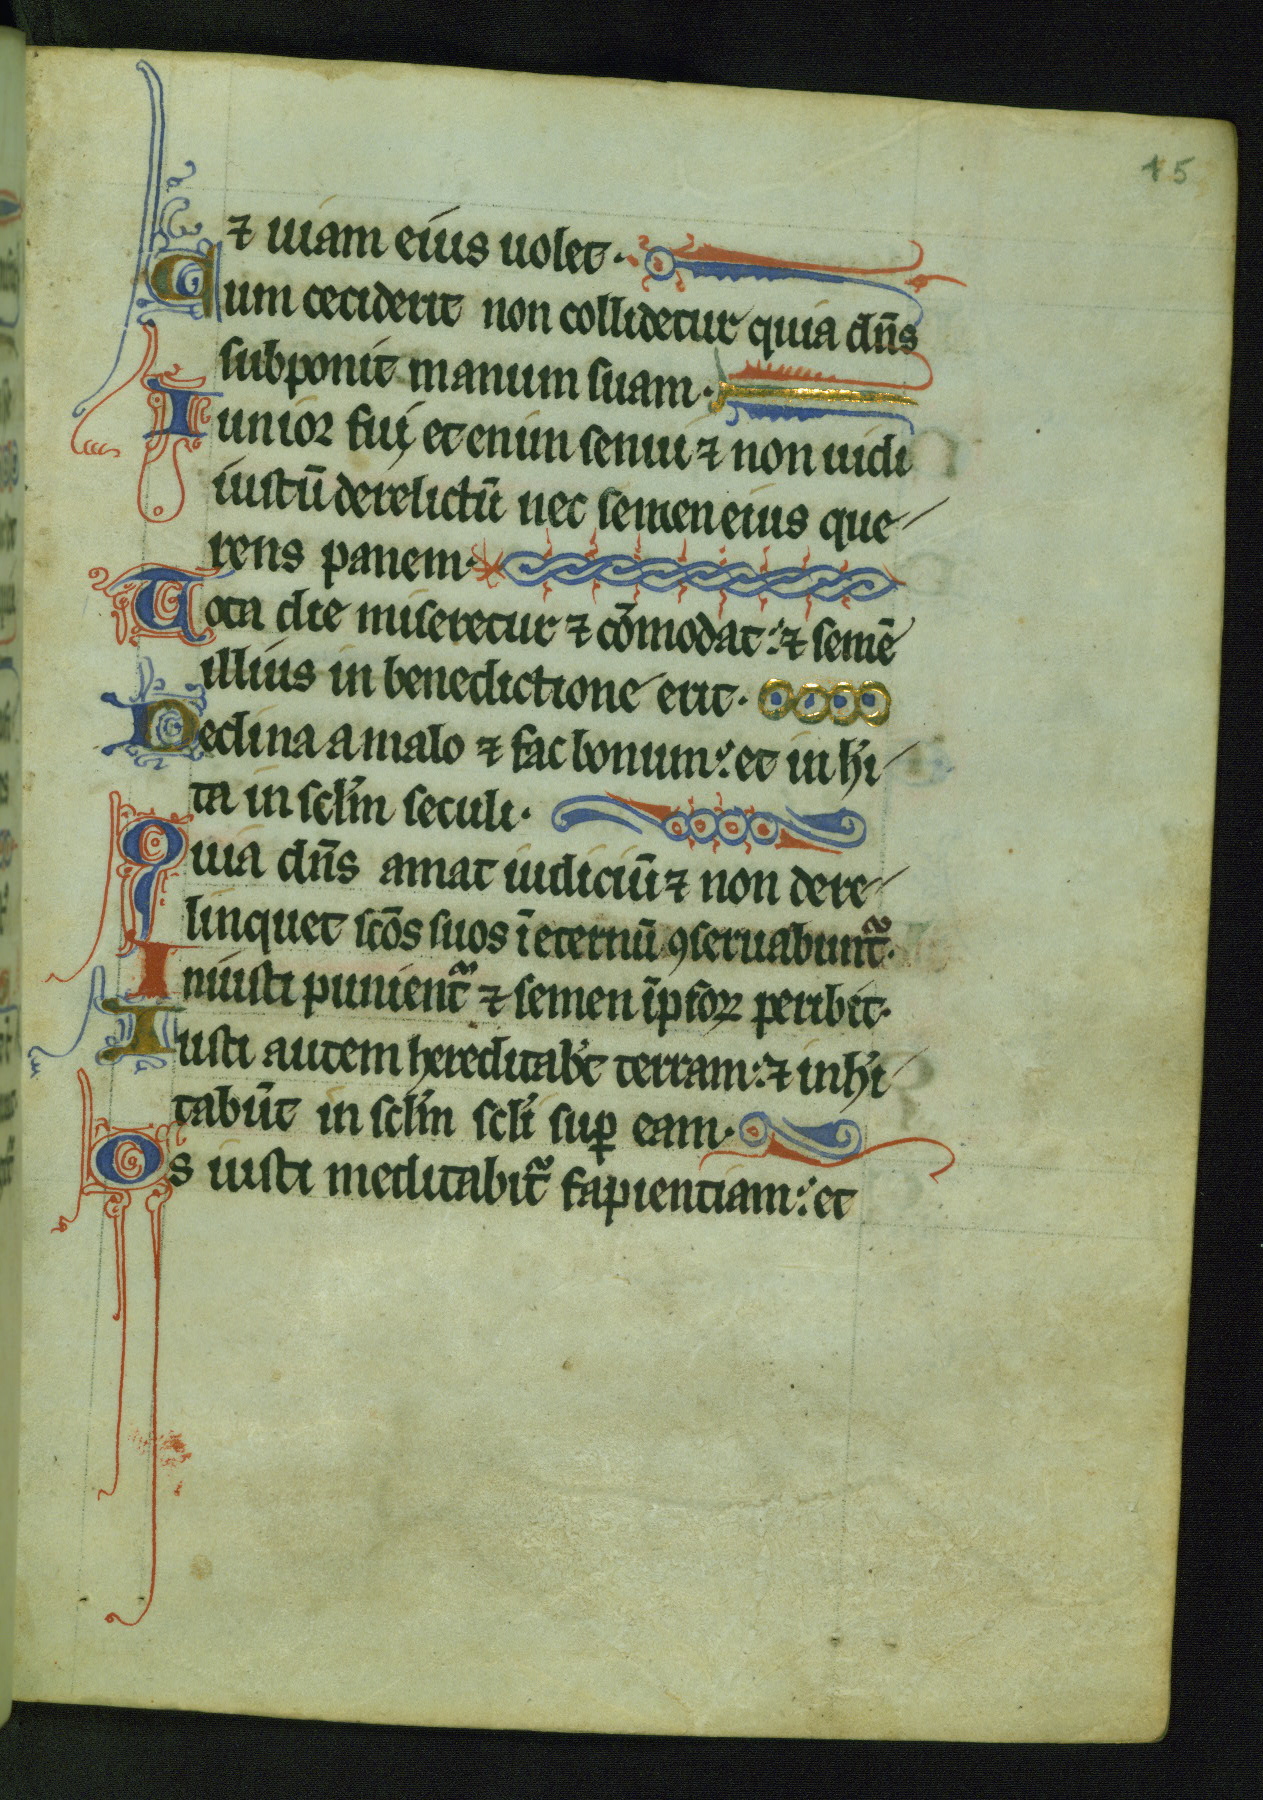 45
⁊ uiam eius uolet·
Cum ceciderit non collidetur quia dn̄s
subponit manum suam·
Iunior fui et enim senui ⁊ non uidi
iustū derelictū nec semen eius que
rens panem·
Tota die miseretur ⁊ cōmodat: ⁊ semē
illius in benedictione erit·
Declina a malo ⁊ fac bonum: et inhi
ta in sclm̄ seculi·
Quia dn̄s amat iudiciū ⁊ non dere
linquet scōs suos ī eternū ꝯseruabunt᷑·
Iniusti punient᷑ ⁊ semen īpioꝝ peribit·
Iusti autem hereditab't terram: ⁊ inhi
tabūt in sclm̄ scli sup̲ eam·
Os iusti meditabit᷑ sapientiam: et